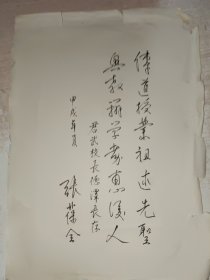 傳道授業祖述先聖
興教辦學嘉惠後人
君武校長德澤長存
甲戌年夏
張葆全